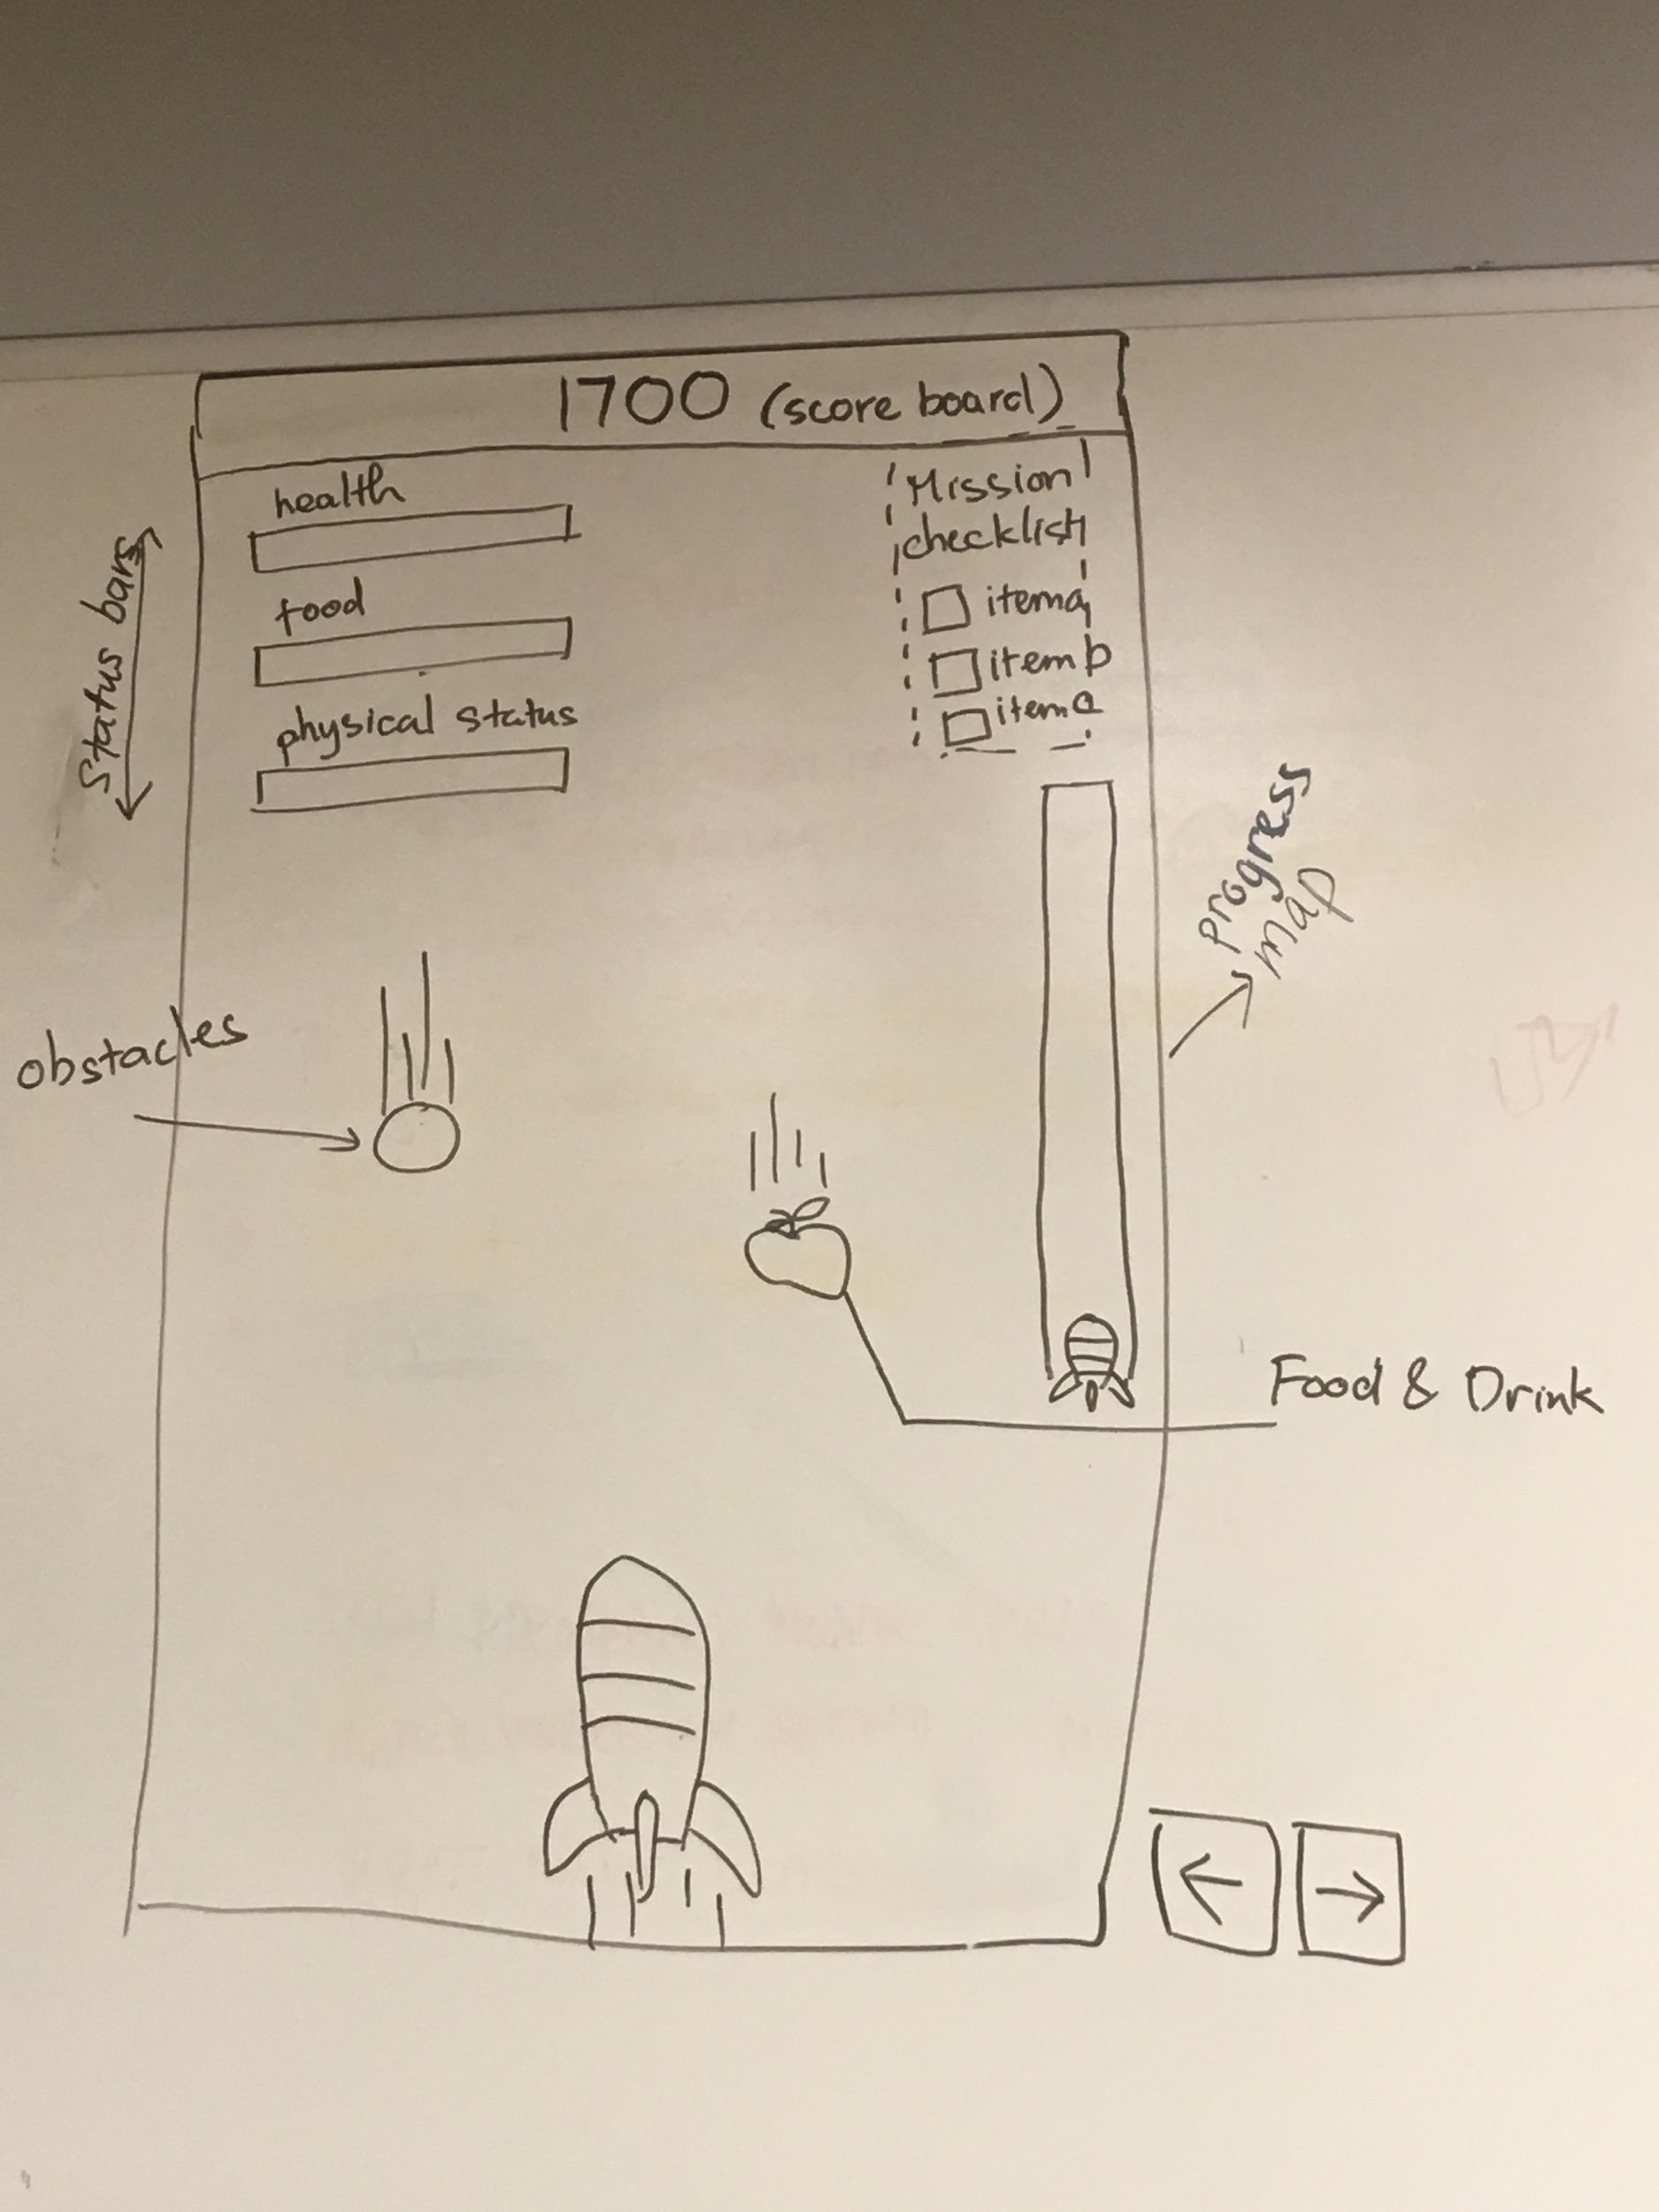 1700 (score board)
health
food
physical status
Status bars
Mission
checklist
item a
item b
item c
progress
map
obstacles
Food & Drink